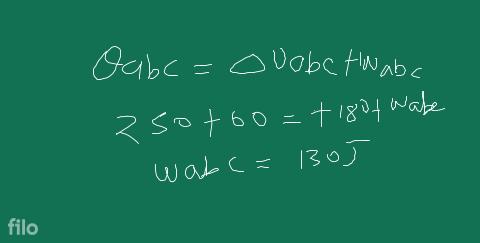 Qabc = △Uabc + Wabc
250 + 60 = + 180 + Wabc
Wabc = 130J
filo